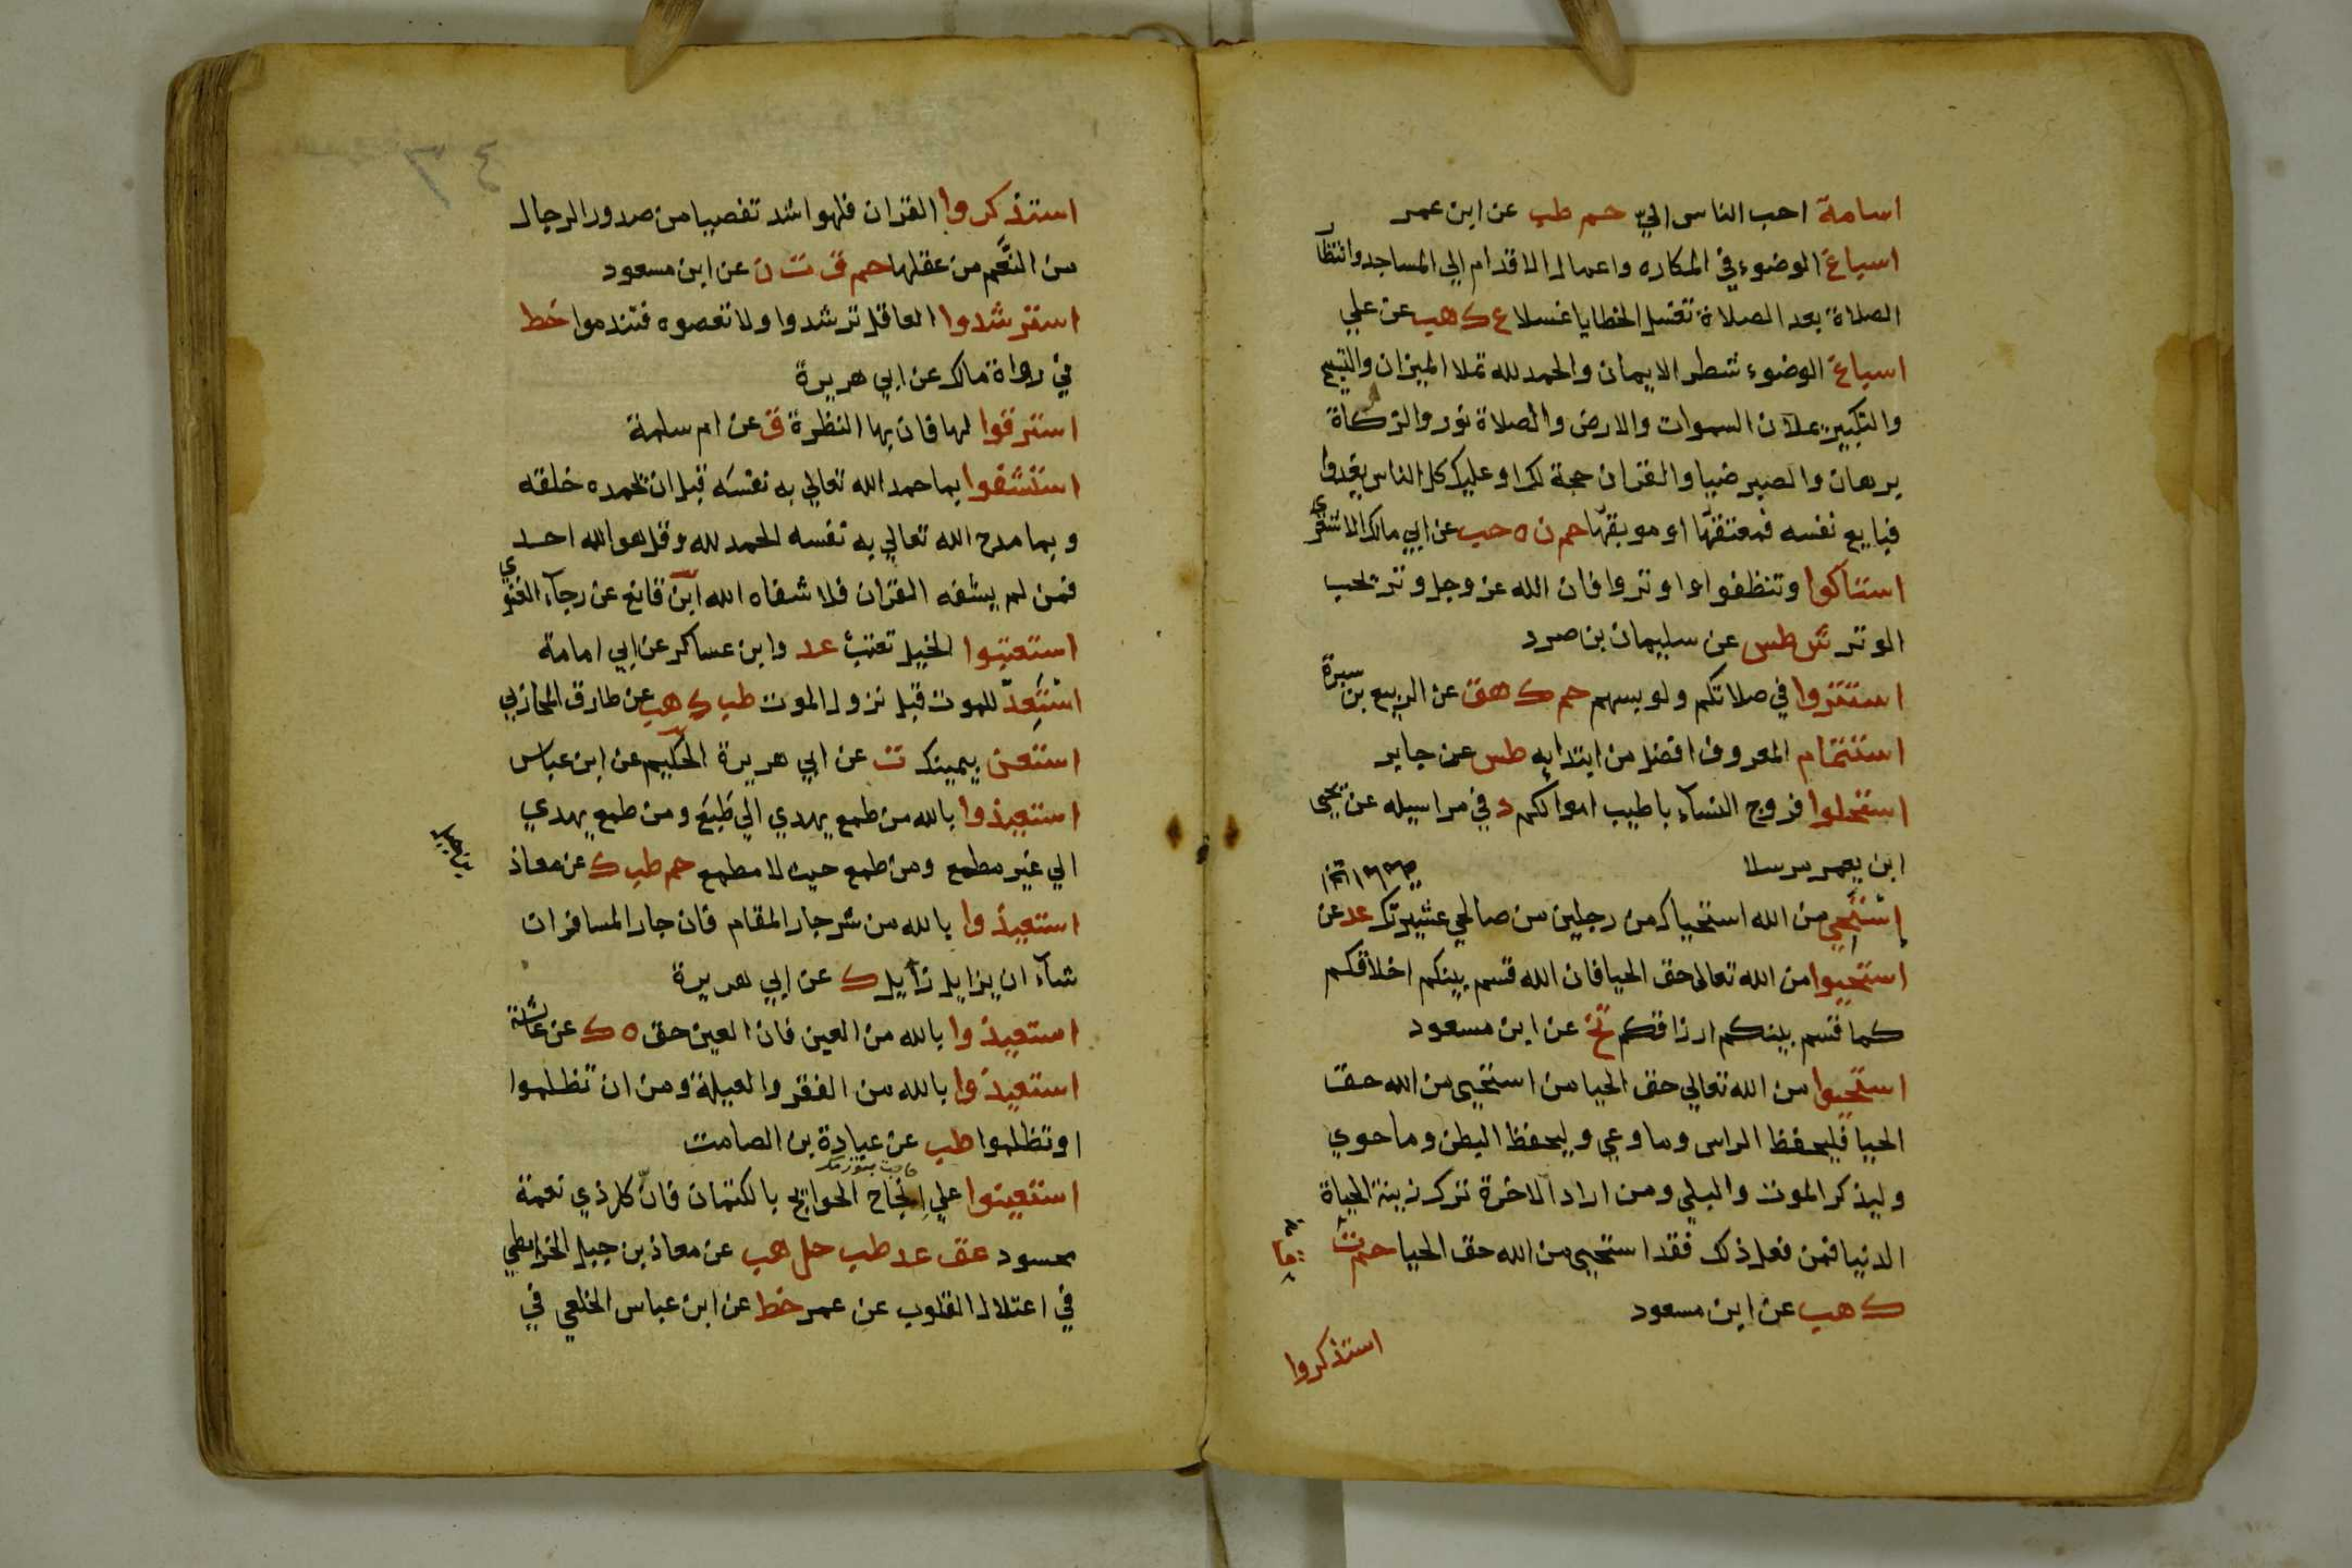 اسامة احب الناس الي حم طب عن ابن عمر
اسباغ الوضوء في المكاره واعمال الاقدام الي المساجد وانتظار
الصلاة بعد الصلاة تغسل الخطايا غسلا ع ك هب عن علي
اسباغ الوضوء شطر الايمان والحمد لله تملا الميزان والتسبيح
والتكبير يملان السموات والارض والصلاة نور والزكاة
برهان والصبر ضيا والقران حجة لك او عليك كل الناس يغدوا
فبايع نفسه فمعتقها او موبقها حم ن ه حب عن ابي مالك الاشعري
استاكوا وتنظفوا واوتروا فان الله عز وجل وتر يحب
الوتر ش طس عن سليمان بن صرد
استتروا في صلاتكم ولو بسهم حم ك هق عن الربيع بن سبرة
استتمام المعروف افضل من ابتدايه طس عن جابر
استحلوا فروج النساء باطيب اموالكم د في مراسيله عن يحيى
ابن يعمر مرسلا
استحي من الله استحياك من رجلين من صالحي عشيرتك عد عن
استحيوا من الله تعالى حق الحيا فان الله قسم بينكم اخلاقكم
كما قسم بينكم ارزاقكم تخ عن ابن مسعود
استحيوا من الله تعالي حق الحيا من استحيى من الله حق
الحيا فليحفظ الراس وما وعي وليحفظ البطن وما حوي
وليذكر الموت والبلي ومن اراد الاخرة ترك زينة الحياة
الدنيا فمن فعل ذلك فقد استحيى من الله حق الحيا حم ت
ك هب عن ابن مسعود
استذكروا
٤٣
استذكروا القران فلهو اشد تفصيا من صدور الرجال
من النعم من عقلها حم ق ت ن عن ابن مسعود
استرشدوا العاقل ترشدوا ولا تعصوه فتندموا خط
في رواة مالك عن ابي هريرة
استرقوا لها فان بها النظرة ق عن ام سلمة
استشفوا بما حمد الله تعالي به نفسه قبل ان يحمده خلقه
وبما مدح الله تعالي به نفسه الحمد لله وقل هو الله احد
فمن لم يشفه القران فلا شفاه الله ابن قانع عن رجاء الغنوي
استعتبوا الخيل تعتب عد وابن عساكر عن ابي امامة
استعد للموت قبل نزول الموت طب ك هب عن طارق المحاربي
استعن بيمينك ت عن ابي هريرة الحكيم عن ابن عباس
استعيذوا بالله من طمع يهدي الي طبع ومن طمع يهدي
الي غير مطمع ومن طمع حيث لا مطمع حم طب ك عن معاذ
بن جبل
استعيذوا بالله من شر جار المقام فان جار المسافر ان
شاء ان يزايل زايل ك عن ابي هريرة
استعيذوا بالله من العين فان العين حق ه ك عن عائشة
استعيذوا بالله من الفقر والعيلة ومن ان تظلموا
او تظلموا طب عن عبادة بن الصامت
استعينوا علي انجاح الحوايج بالكتمان فان كل ذي نعمة
محسود عق عد طب حل هب عن معاذ بن جبل الخرايطي
في اعتلال القلوب عن عمر خط عن ابن عباس الخلعي في